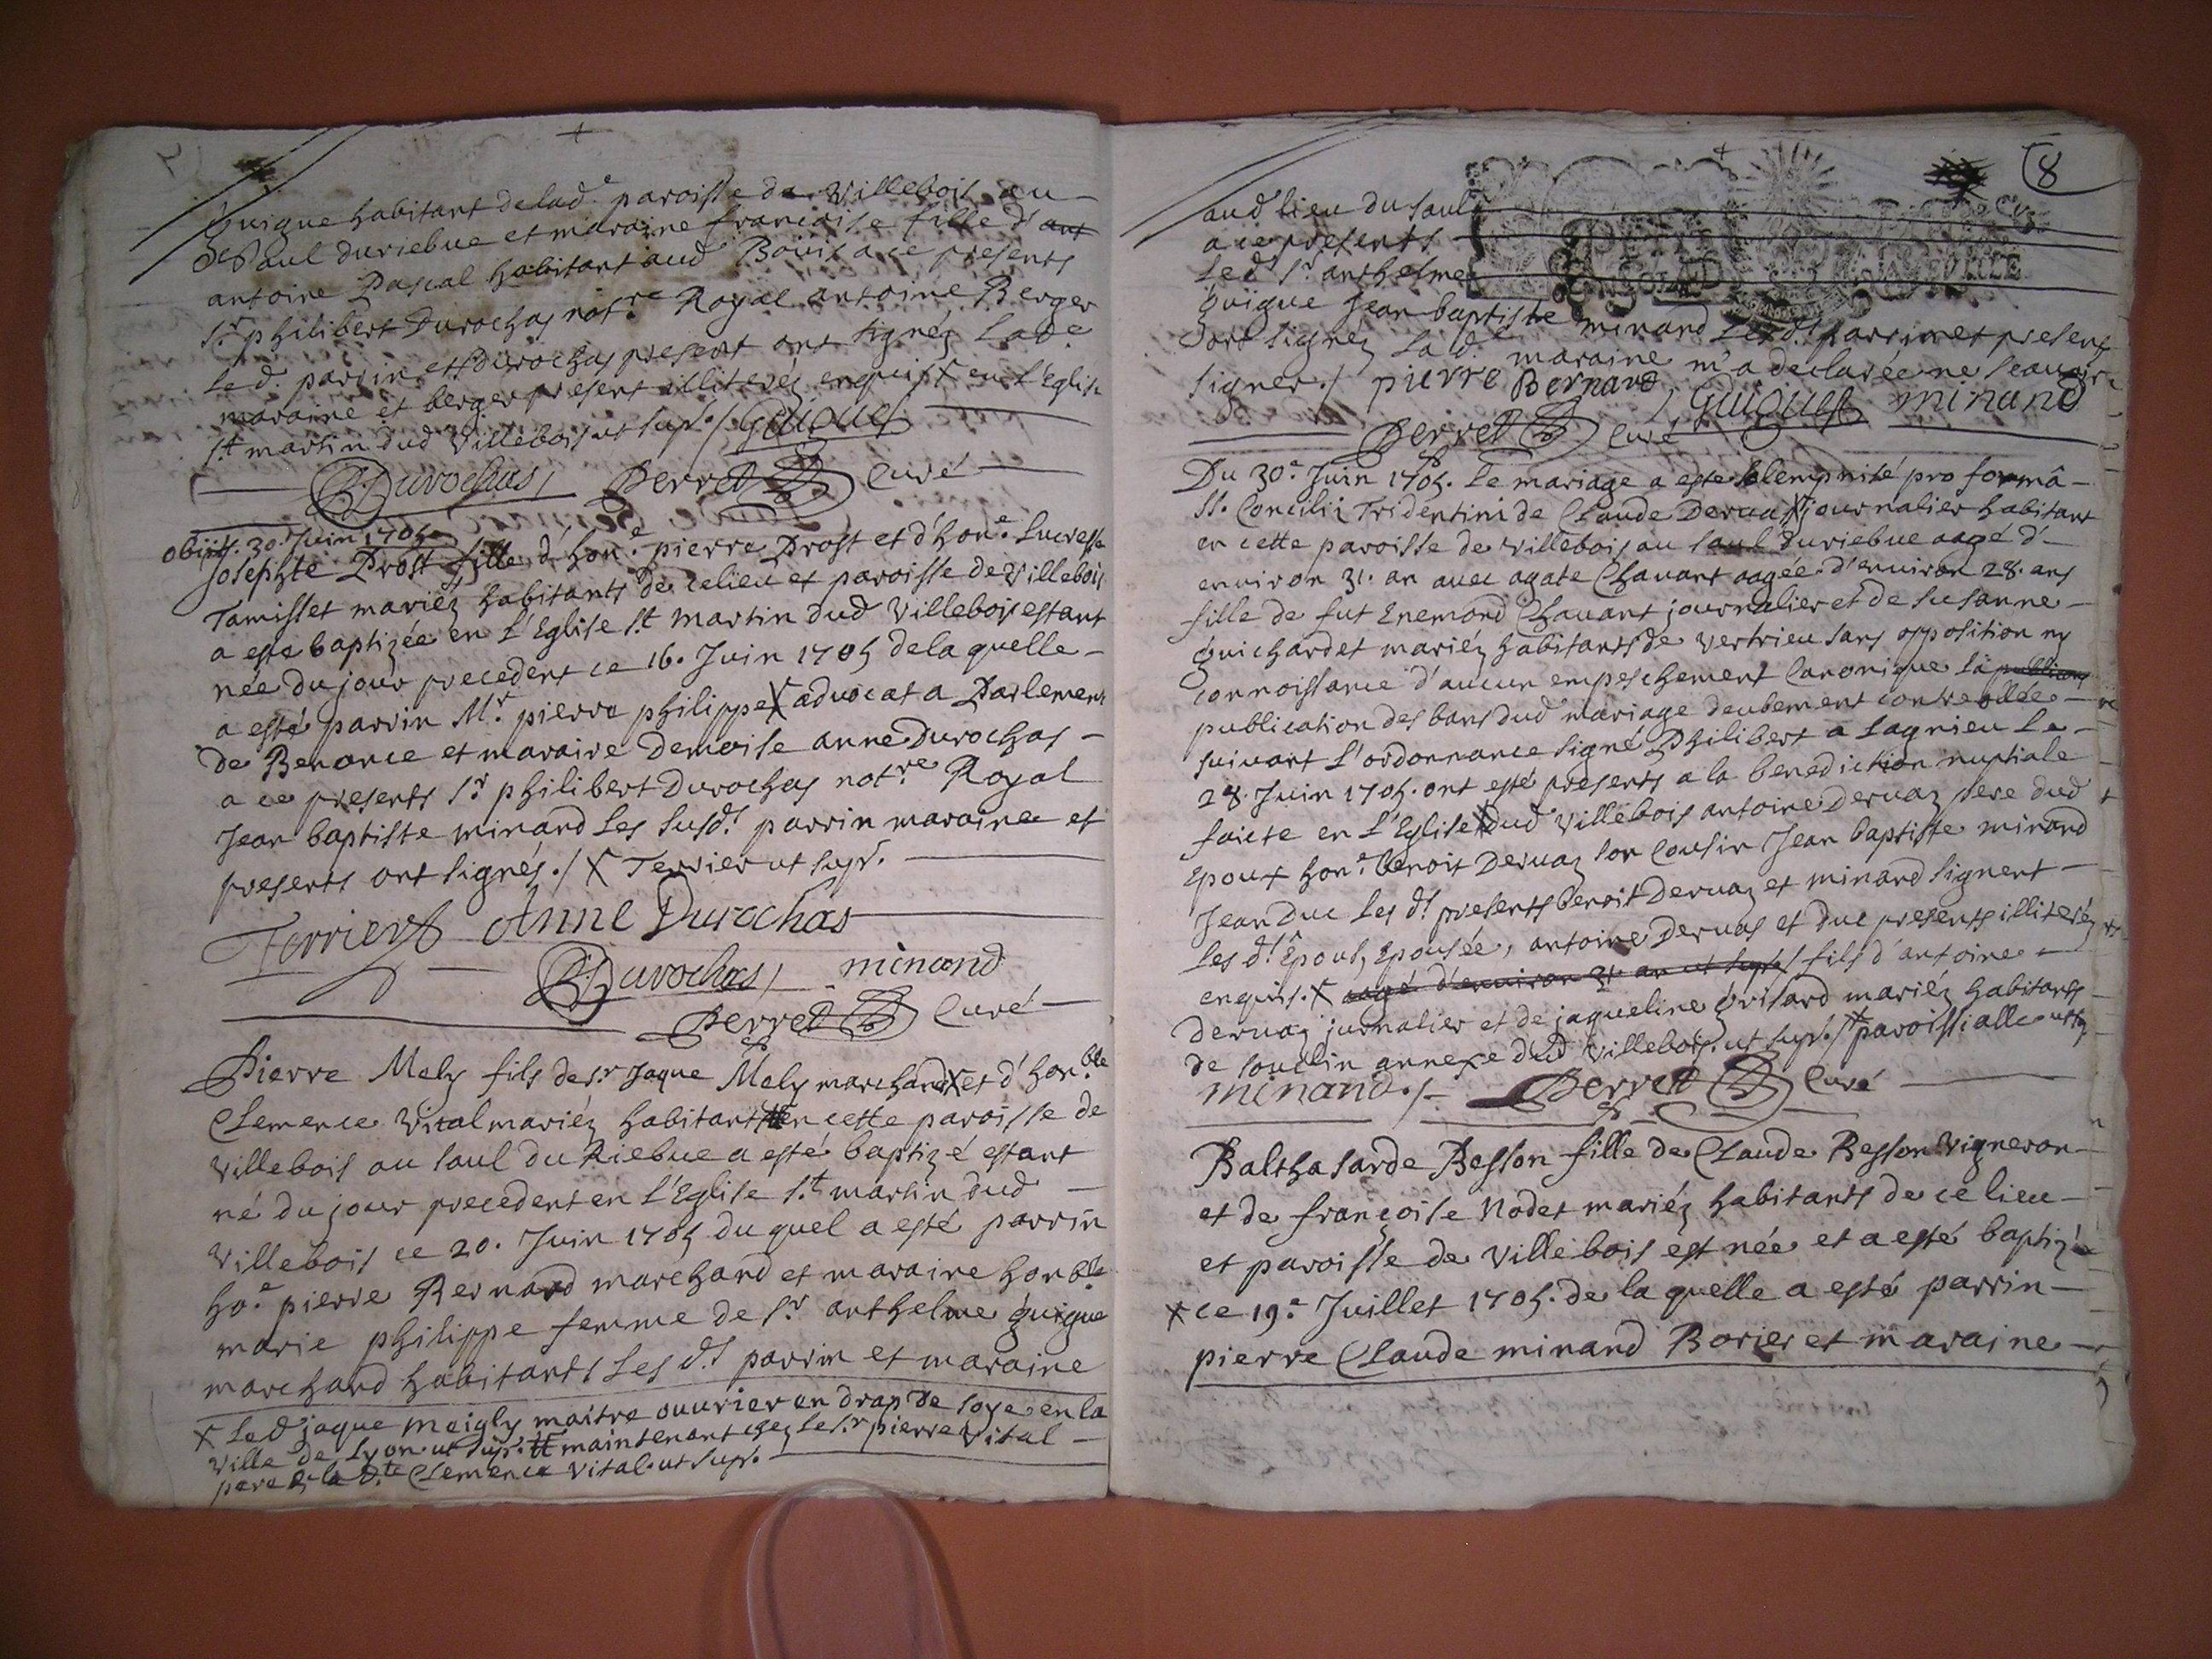 guigue habitant de lad.e paroisse de Villebois au
Saul duriebue et maraine francoise fille d' ant
antoine Pascal habitant aud Boüis a ce presents
s.r philibert Durochas not.re Royal antoine Berger
Led. parrin et durochas present ont signéz Lad.e
maraine et berger present illiteréz enquis X en l'Eglise
s.t martin dud Villebois ut sup.r /. Guigue
Durochas, Perret Curé
obiit. 30. Juin 1705
Josephte Prost fille d'hon.e pierre Prost et d'hon.e Lucresse
Tamisset mariéz habitants de celieu et paroisse de Villebois
a este baptizée en L'Eglise s.t Martin dud Villebois estant
née du jour precedent ce 16. Juin 1705 de la quelle
a esté parrin M.r pierre philippe X advocat a Parlement
de Benonce et maraine Demoise anne Durochas
a ce presents s.r philibert Durochas not.re Royal
Jean baptiste minand Les susd.s parrin maraine et
presents ont signés. / X Terrier ut sup.r
Terrier Anne Durochas
Durochas, minand
Perret Curé
Pierre Mely fils de s.r Jaque Mely marchand X et d'hon.ble
Clemence Vital mariéz habitants en cette paroisse de
Villebois au saul du Riebue a esté baptizé estant
né du jour precedent en l'Eglise s.t martin dud
Villebois ce 20. Juin 1705 du quel a esté parrin
ho.e pierre Bernard marchand et maraine hon.ble
marie philippe femme de s.r anthelme guigue
marchand habitants Les d.s parrin et maraine
X Led jaque meigly maitre ouvrier en drap de soye en la
ville de Lyon ut sup.r # maintenant chez Le s.r pierre Vital
pere de la d.te Clemence Vital ut sup.r
8
aud lieu du saul
a ce presents
Led. s.r anthelme
guigue Jean baptiste minand Lesd. parrin et presents
sont signéz La d. maraine m'a declarée ne scavoir
signer. / pierre Bernard, Guigue minand
Perret Curé
Du 30.e Juin 1705. Le mariage a este solempnité pro formâ
ss. Concilii Tridentini de Claude Dervaz X journalier habitant
en cette paroisse de villebois au saul duriebue aagé d'
environ 31. an avec agate Chavant aagée d'environ 28. ans
fille de fut Enemond Chavant journalier et de susanne
guichardet mariéz habitants de Vertrieu sans opposition ny
connoissance d'aucun empeschement Canonique La
publication des bans dud mariage deubement
suivant L'ordonnance signé Philibert a Lagnieu Le
28. Juin 1705. ont esté presents a la benediction nuptiale
faicte en L'Eglise X dud Villebois antoine Dervaz pere dud
Epoux hon.e benoit Dervaz son Cousin Jean baptiste minand
Jean Duc Les d.s presents benoit Dervaz et minand signent
Les d.s Epoux, Epousée, antoine Dervas et duc presents illiteréz
enquis. X aagé d'environ 31 an ut sup.r / fils d'antoine
dervaz jurnalier et de jaqueline grisard mariéz habitants
de souclin annexe dud Villebois. ut sup.r / X paroissialle
minand. / Perret Curé
Balthasarde Besson fille de Claude Besson Vigneron
et de françoise Nodet mariéz habitants de ce lieu
et paroisse de Villebois est née et a esté baptizée
X ce 19.e Juillet 1705. de la quelle a esté parrin
pierre Claude minand Borier et maraine